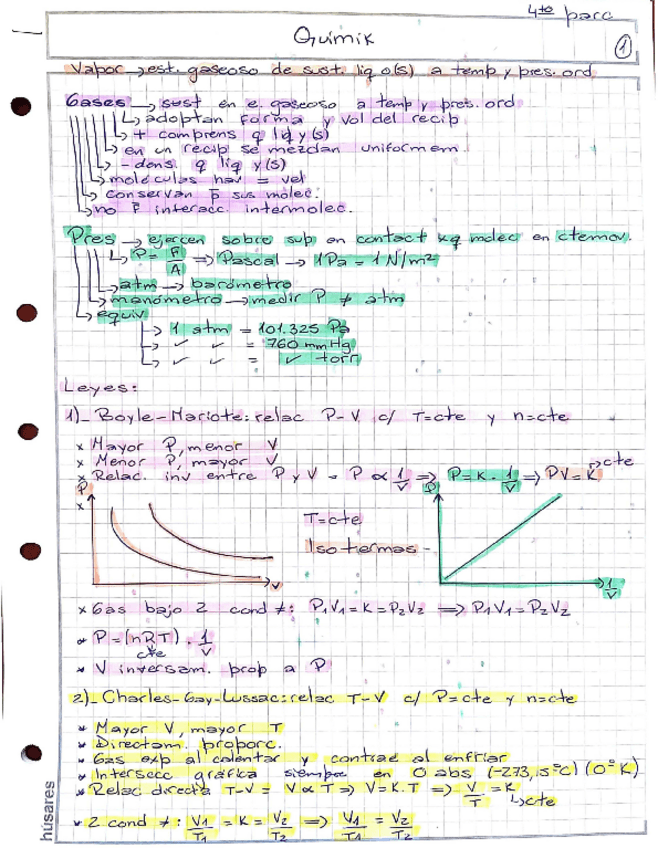 4to parc
Química
1
Vapor → est. gaseoso de sust. liq o (s) a temp y pres. ord
Gases → sust en e. gaseoso a temp y pres. ord
↳ adoptan forma y vol del recip
↳ + comprens q liq y (s)
↳ en un recip se mezclan uniformem.
↳ - dens. q liq y (s)
↳ moléculas = vel
↳ conservan sus molec.
↳ no interacc. intermolec.
Pres → ejercen sobre sup en contact xq molec en ctemov.
↳ P = F/A ⇒ Pascal → 1Pa = 1 N/m²
↳ atm → barómetro
↳ manómetro → medir P ≠ atm
↳ equiv
↳ 1 atm = 101.325 Pa
↳ ✓ ✓ = 760 mmHg
↳ ✓ ✓ = ✓ torr
Leyes:
1)_ Boyle-Mariote: relac P-V c/ T=cte y n=cte
x Mayor P, menor V
x Menor P, mayor V
x Relac. inv entre P y V = P ∝ 1/V ⇒ P = K . 1/V ⇒ PV = K → cte
P
x
V
T=cte
Isotermas -
P
1/V
x Gas bajo 2 cond ≠: P₁V₁ = K = P₂V₂ ⇒ P₁V₁ = P₂V₂
* P = (nRT) . 1/V
cte
* V inversam. prop a P
2)_ Charles-Gay-Lussac: relac T-V c/ P=cte y n=cte
* Mayor V, mayor T
* Directam. proporc.
* Gas exp al calentar y contrae al enfriar
* Intersecc gráfica siempre en 0 abs (-273,15°C) (0°K)
* Relac directa T-V = V ∝ T ⇒ V = K.T ⇒ V/T = K
↳ cte
* 2 cond ≠: V₁/T₁ = K = V₂/T₂ ⇒ V₁/T₁ = V₂/T₂
húsares